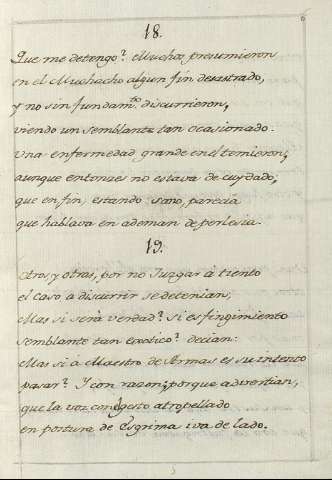 18.
Que me detengo? Muchos presumieron
en el Muchacho algun fin desastrado,
y no sin fundam.to discurrieron,
viendo un semblante tan ocasionado.
Una enfermedad grande en el temieron;
aunque entonzes no estava de cuydado;
que en fin, estando sano, parecia
que hablava en ademan de perlesia.
19.
Otros, y otras, por no Juzgar à tiento
el caso a discurrir se detenian;
Mas si serà verdad? Si es fingimiento
semblante tan exotico? decian:
Mas si à Maestro de Armas es su intento
pasar? Y con razon; porque advertian,
que la voz con gesto atropellado
en postura de Esgrima iva de lado.